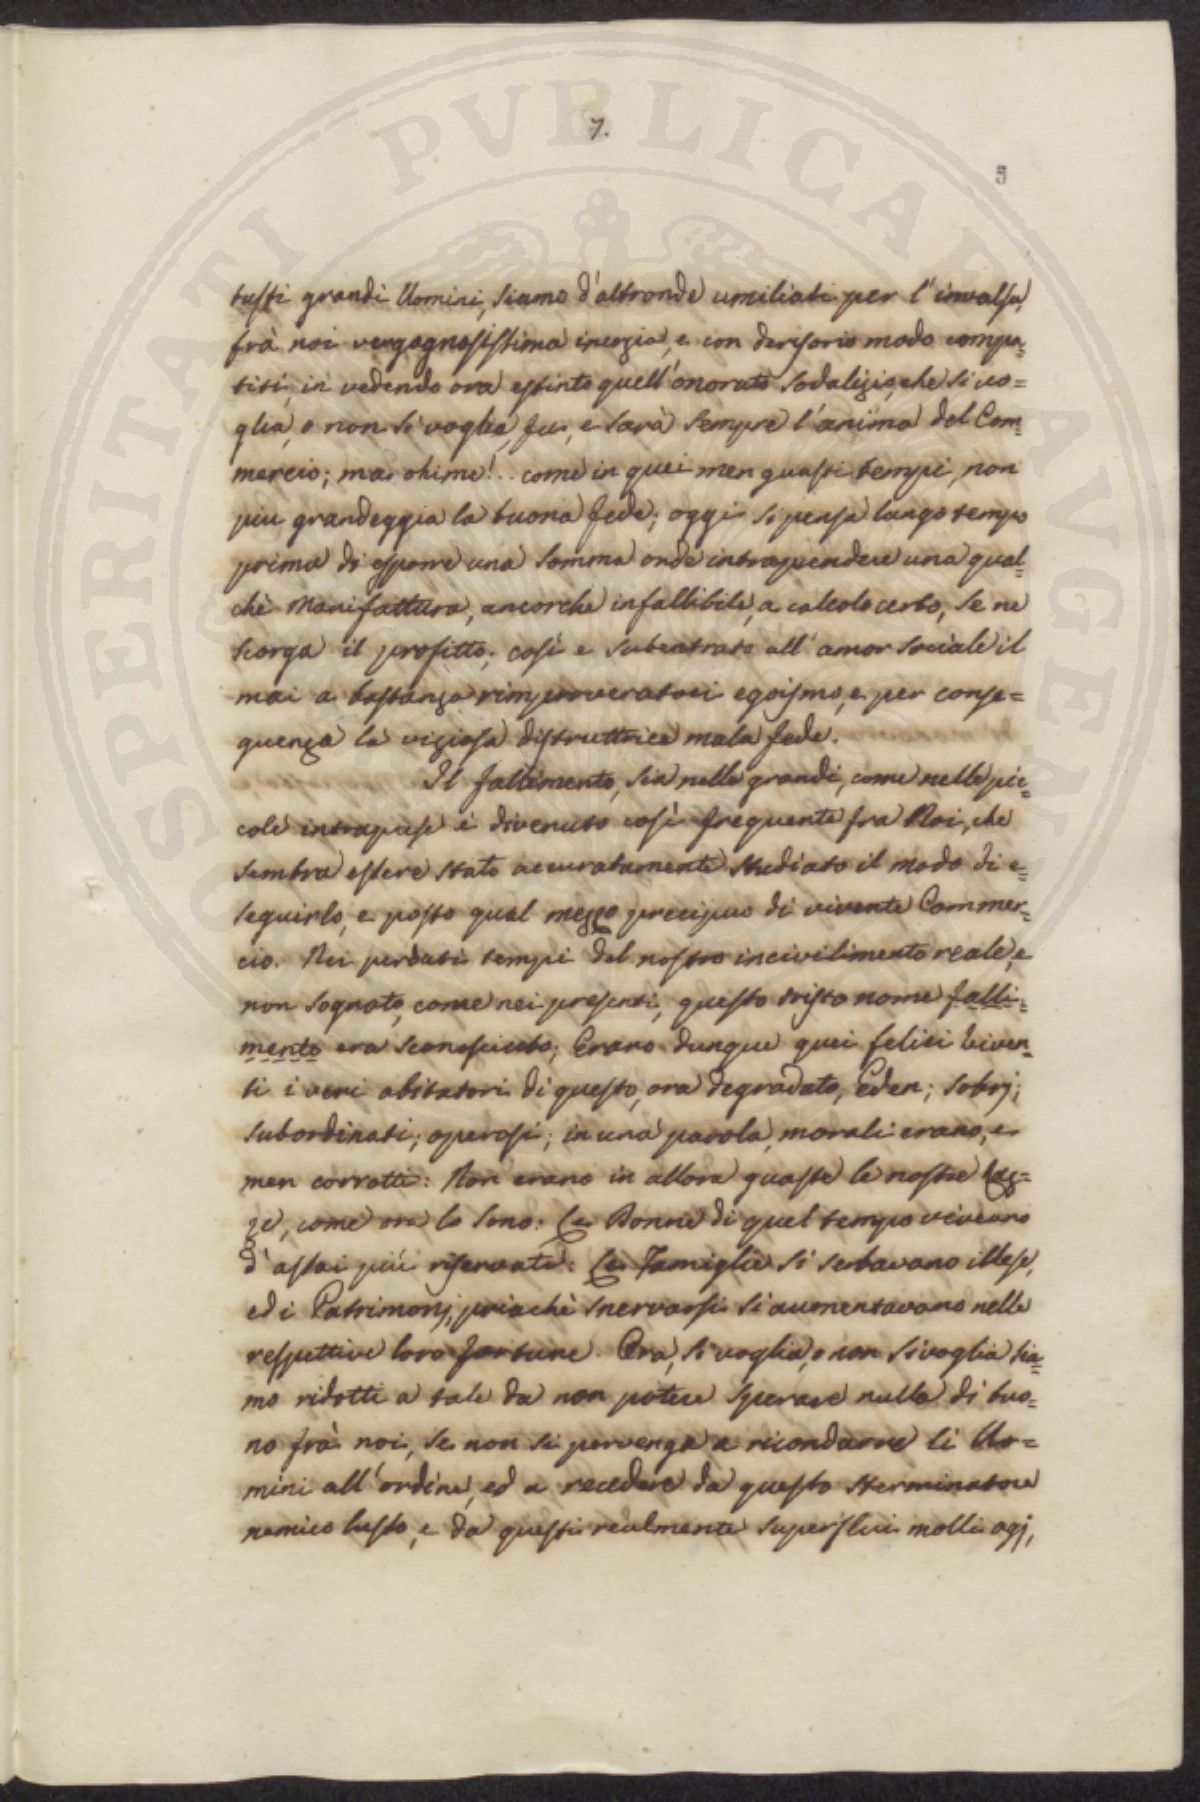 7.
5
tusti grandi Uomini, siamo d'altronde umiliati per l'invalsa,
frà noi vergognosissima inerzia, e con derisorio modo compa=
titi, in vedendo ora estinto quell'onorato Sodalizio, che si vo=
glia, o non si voglia, fu, e sarà sempre l'anima del Com=
mercio; ma ohime!.. come in quei men guasti tempi, non
piu grandeggia la buona fede; oggi si pensa lungo tempo
prima di esporre una somma onde intraprendere una qual=
chè Manifattura, ancorche infallibile, a calcolo certo, se ne
scorga il profitto; così e subentrato all'amor sociale il
mai a bastanza rimproveratoci egoismo, e per conse=
guenza la viziosa distruttrice mala fede.
Il fallimento, sia nelle grandi, come nelle pic=
cole intraprese è divenuto così frequente fra Noi, che
sembra essere stato accuratamente studiato il modo di e=
seguirlo, e posto qual mezzo precipuo di vivente Commer=
cio. Nei perduti tempi del nostro incivilimento reale, e
non sognato, come nei presenti, questo tristo nome falli=
mento era sconosciuto; Erano dunque quei felici viven=
ti i veri abitatori di questo, ora degradato, Eden; sobrj;
subordinati; operosi; in una parola, morali erano, e
men corrotti: Non erano in allora guaste le nostre Raz=
ze, come ora lo sono: Le Donne di quel tempo viveano
d'assai più riservate: Le Famiglie si serbavano illese,
ed i Patrimonj, priachè snervarsi si aumentavano nelle
respettive loro fortune. Ora, si voglia, o non si voglia sia=
mo ridotti a tale da non potere sperare nulla di buo=
no frà noi, se non si pervenga a ricondurre li Uo=
mini all'ordine, ed a recedere da questo sterminatore
nemico lusso, e da questi realmente superflui molli agj,
PROSPERITATI PVBLICAE AVGENDAE